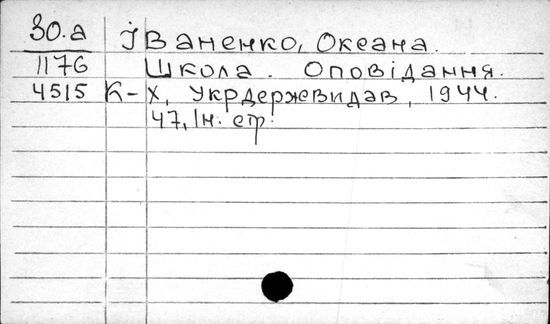 30.а Іваненко, Океана.
1176 Школа. Оповідання.
4515 К-Х, Укрдержвидав, 1944.
47, Ін. стр.